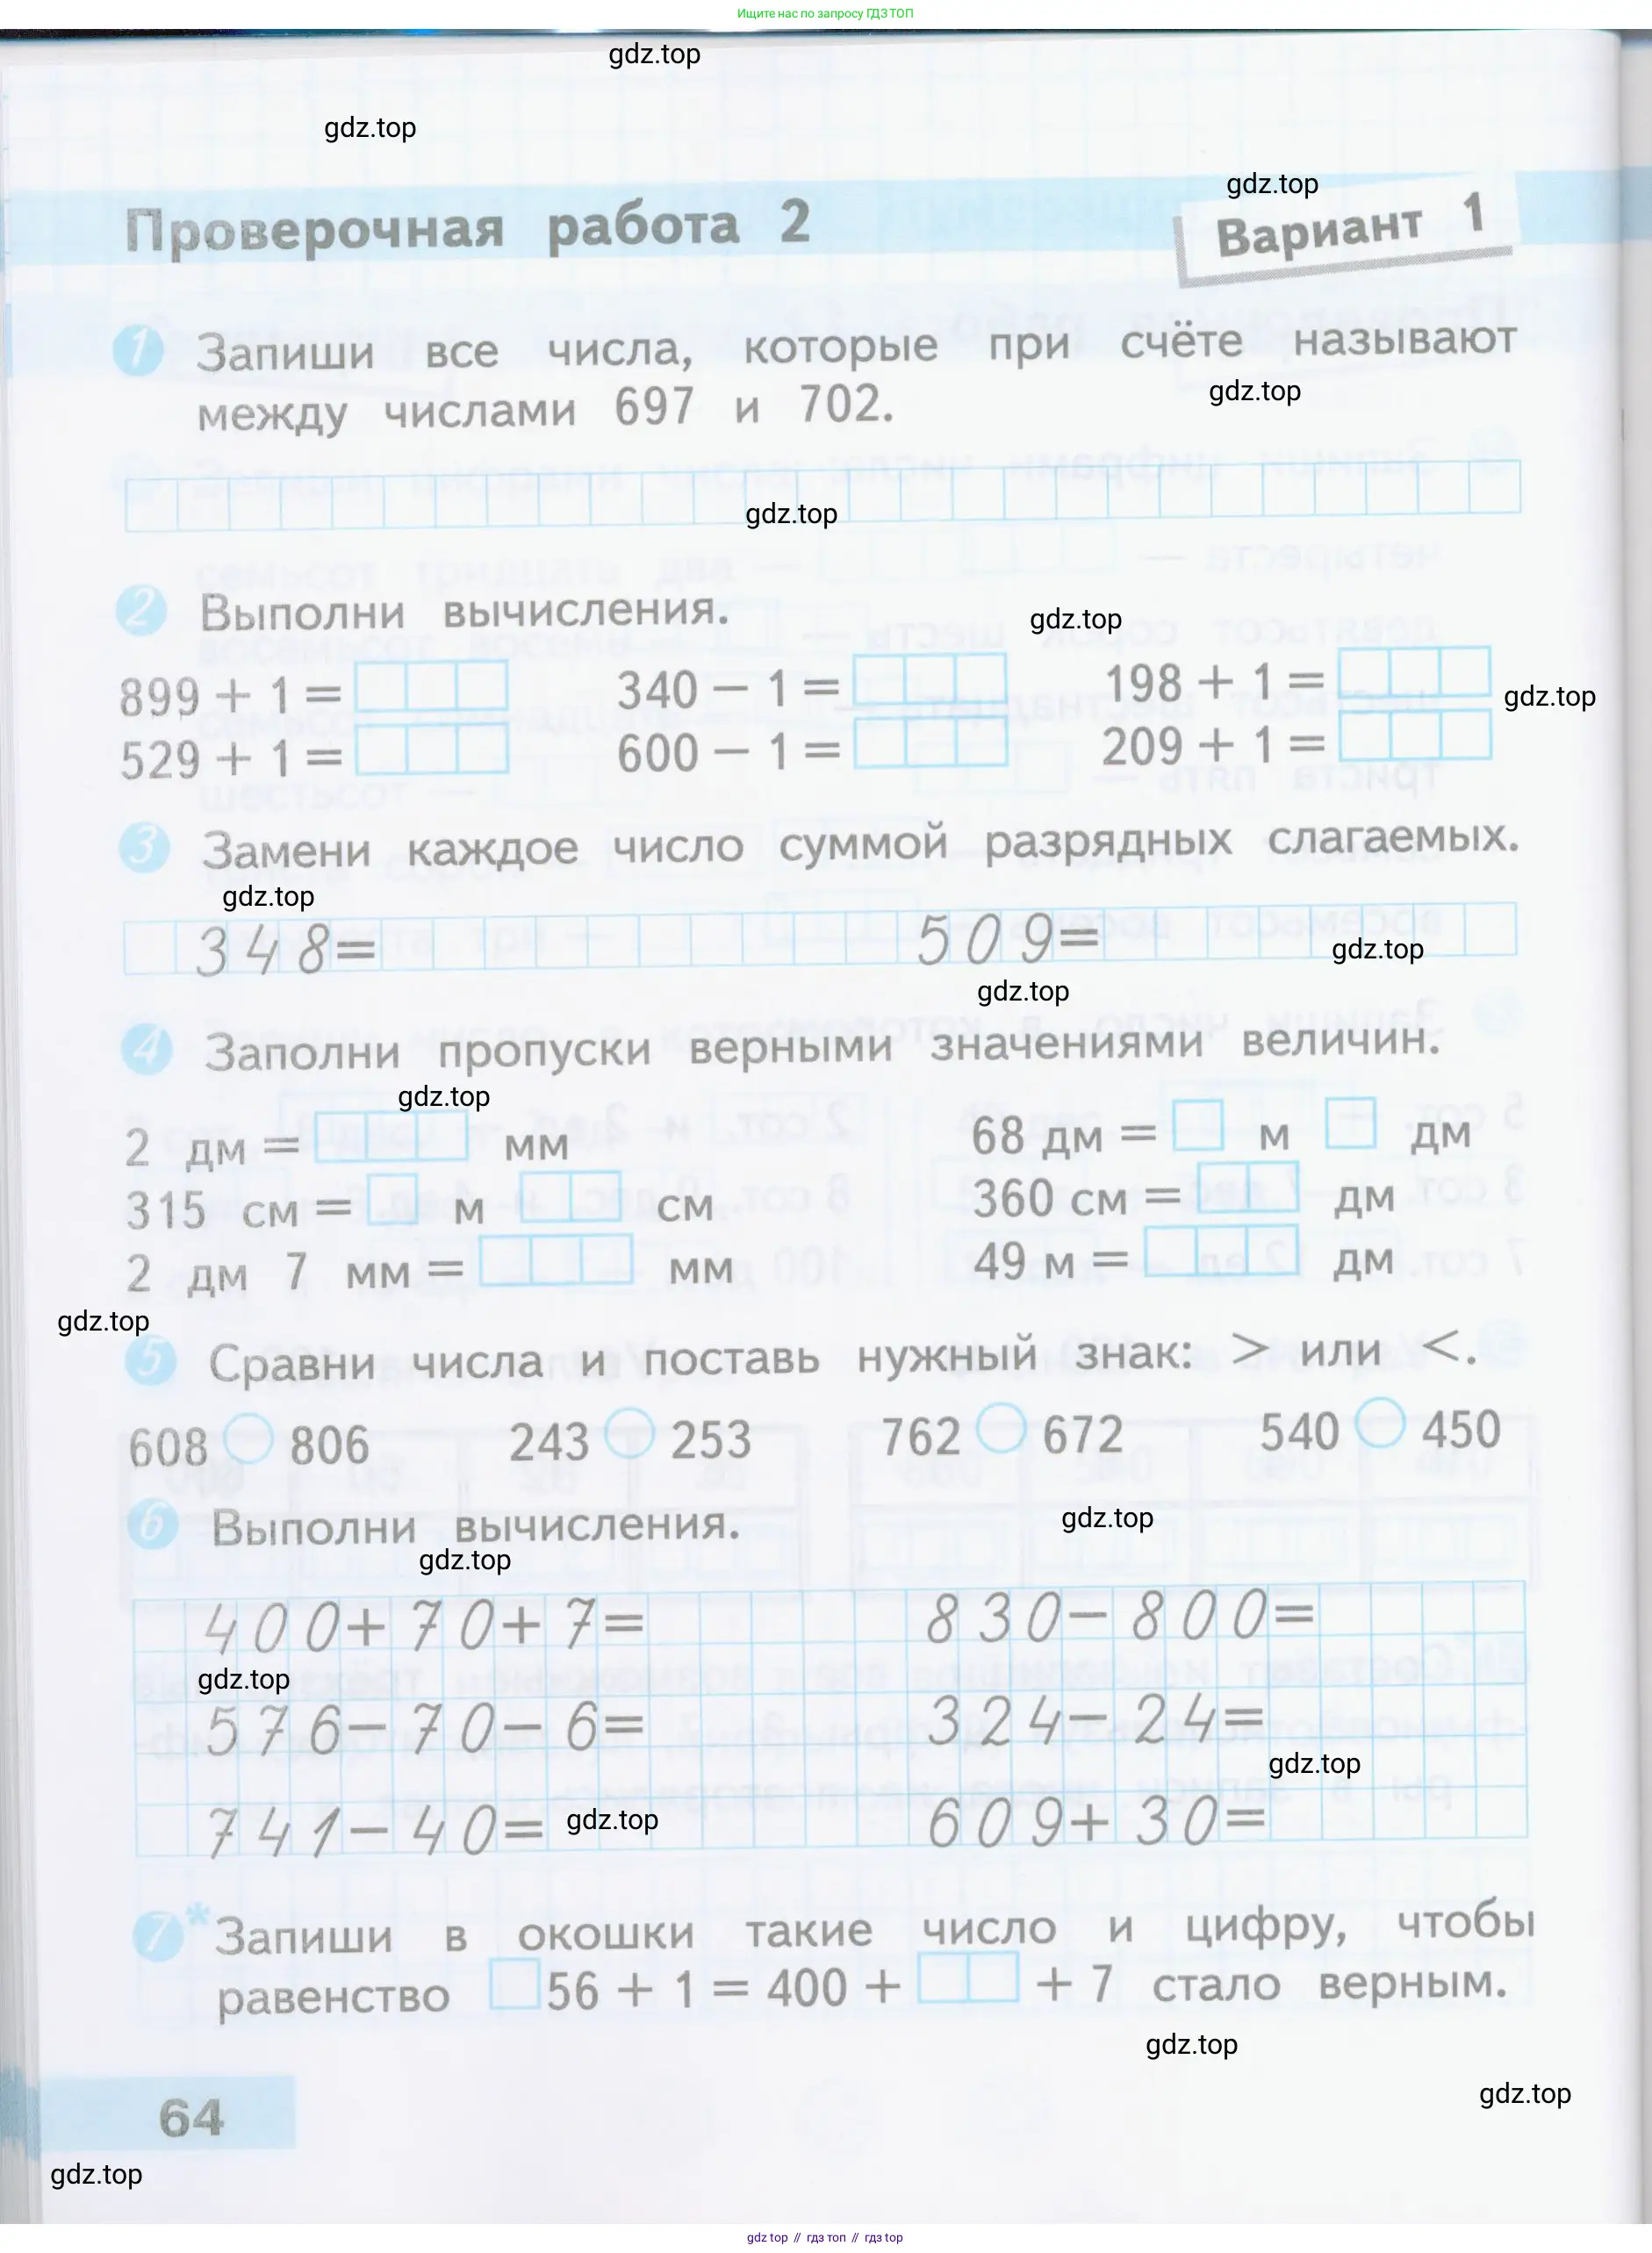 Ищите нас по запросу ГДЗ ТОП
gdz.top
gdz.top
gdz.top
Проверочная работа 2
Вариант 1
1 Запиши все числа, которые при счёте называют
gdz.top
между числами 697 и 702.
gdz.top
2 Выполни вычисления.
gdz.top
899 + 1 = 340 − 1 = 198 + 1 =
gdz.top
529 + 1 = 600 − 1 = 209 + 1 =
3 Замени каждое число суммой разрядных слагаемых.
gdz.top
348= 509=
gdz.top
gdz.top
4 Заполни пропуски верными значениями величин.
gdz.top
2 дм = мм 68 дм = м дм
315 см = м см 360 см = дм
2 дм 7 мм = мм 49 м = дм
gdz.top
5 Сравни числа и поставь нужный знак: > или <.
608 806 243 253 762 672 540 450
6 Выполни вычисления.
gdz.top
gdz.top
400+70+7= 830−800=
gdz.top
576−70−6= 324−24=
gdz.top
741−40= 609+30=
gdz.top
7* Запиши в окошки такие число и цифру, чтобы
равенство 56 + 1 = 400 + + 7 стало верным.
gdz.top
gdz.top
64
gdz.top
gdz top // гдз топ // гдз top